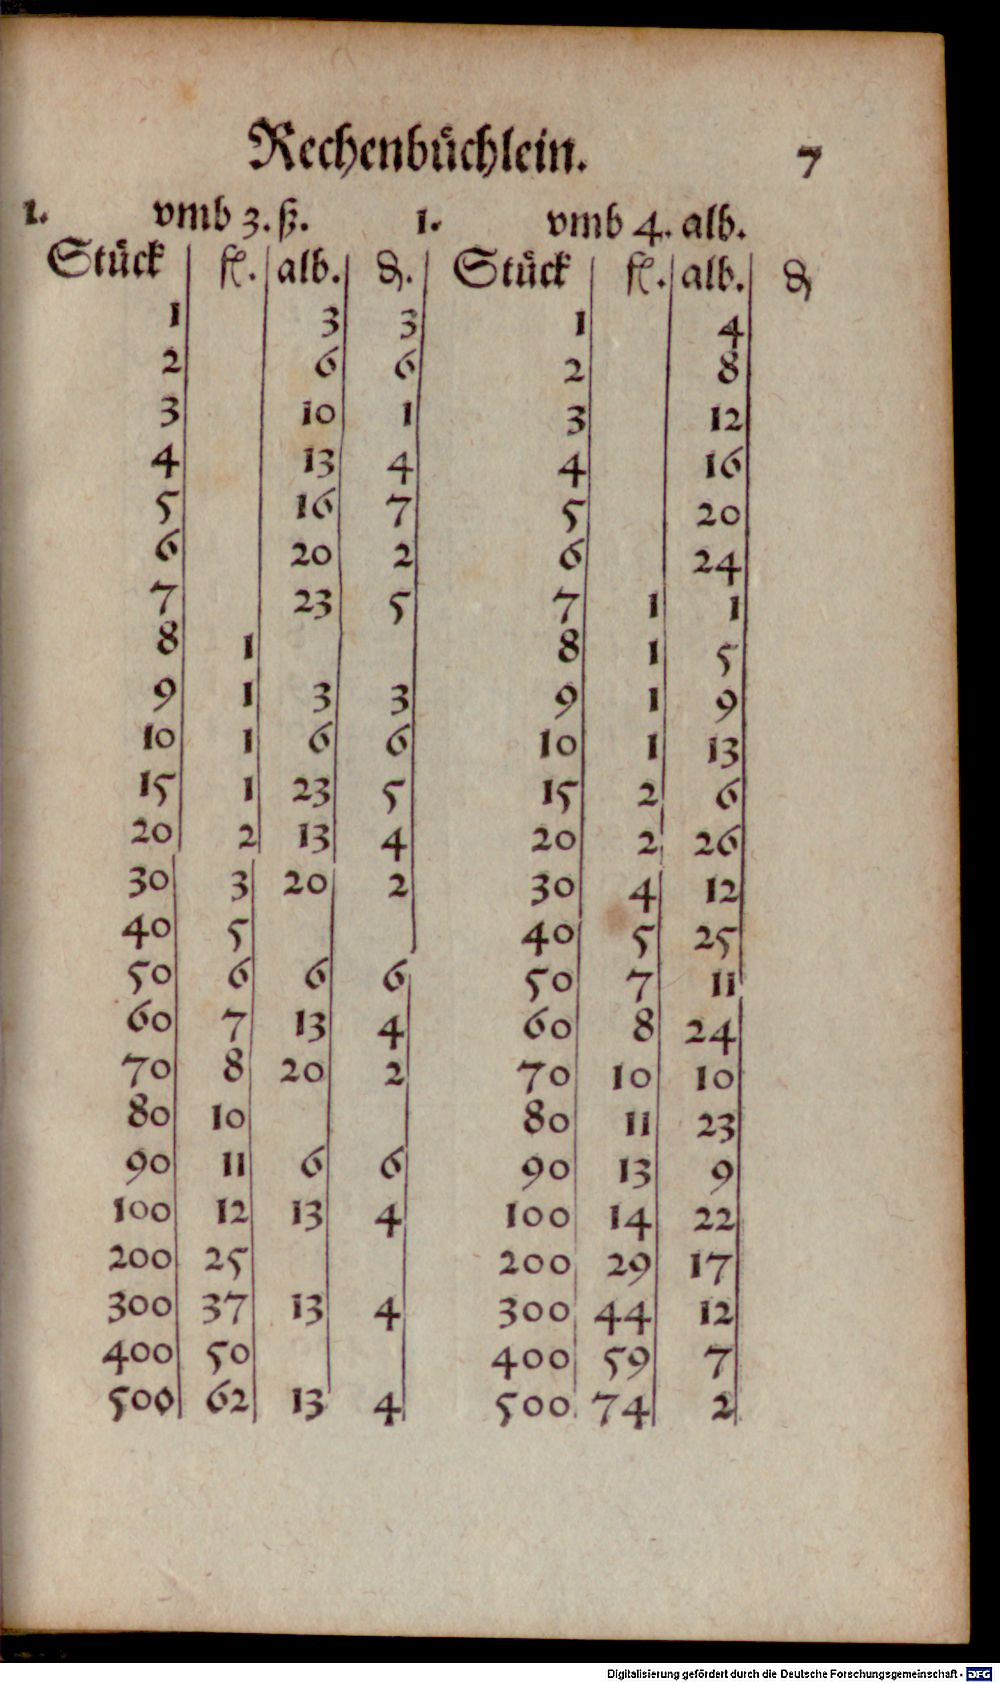 Rechenbüchlein. 7
1. vmb 3. ß. 1. vmb 4. alb.
Stück fl. alb. ₰. Stück fl. alb. ₰
1 3 3 1 4
2 6 6 2 8
3 10 1 3 12
4 13 4 4 16
5 16 7 5 20
6 20 2 6 24
7 23 5 7 1 1
8 1 8 1 5
9 1 3 3 9 1 9
10 1 6 6 10 1 13
15 1 23 5 15 2 6
20 2 13 4 20 2 26
30 3 20 2 30 4 12
40 5 40 5 25
50 6 6 6 50 7 11
60 7 13 4 60 8 24
70 8 20 2 70 10 10
80 10 80 11 23
90 11 6 6 90 13 9
100 12 13 4 100 14 22
200 25 200 29 17
300 37 13 4 300 44 12
400 50 400 59 7
500 62 13 4 500 74 2
Digitalisierung gefördert durch die Deutsche Forschungsgemeinschaft - DFG